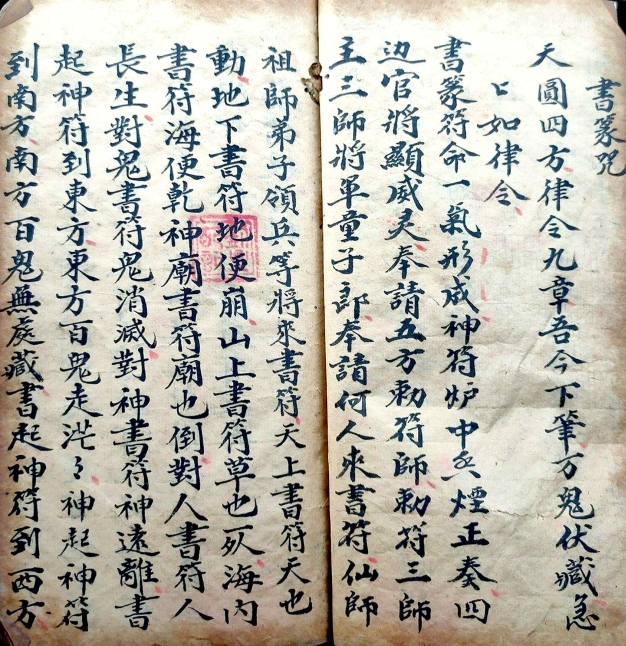 書篆咒
天圓四方律令九章吾今下筆万鬼伏藏急
〻如律令
書篆符命一氣形成神符炉中香煙正奏四
边官將顯威灵奉請五方勅符師勅符三師
主三師將軍童子郎奉請何人來書符仙師
祖師弟子領兵等將來書符天上書符天也
動地下書符地便崩山上書符草也死海内
書符海便乾神廟書符廟也倒對人書符人
長生對鬼書符鬼消滅對神書符神遠離書
起神符到東方東方百鬼走茫〻神起神符
到南方南方百鬼無處藏書起神符到西方